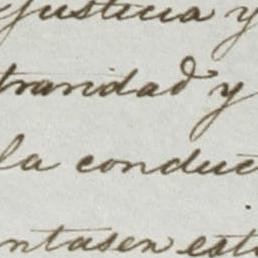 justicia y
tranidad y
la conduc
ntasen esta